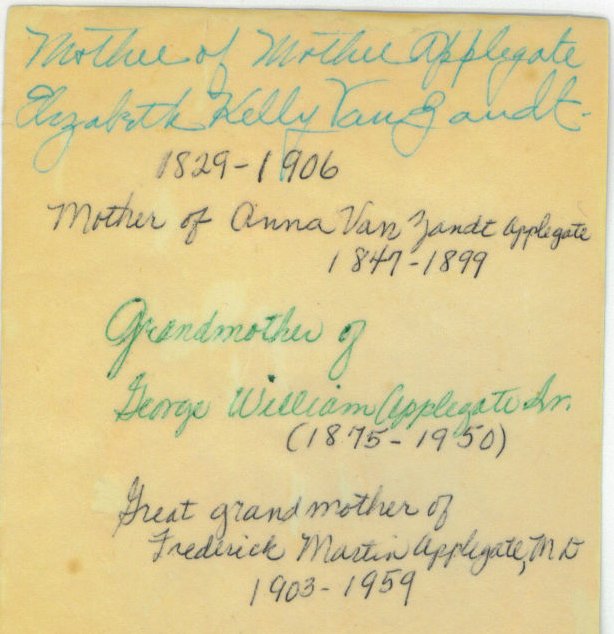 Mother of Mother Applegate
Elizabeth Kelly Van Zandt -
1829-1906
Mother of Anna Van Zandt Applegate
1847-1899
Grandmother of
George William Applegate Sr.
(1875-1950)
Great grandmother of
Frederick Martin Applegate, MD
1903-1959